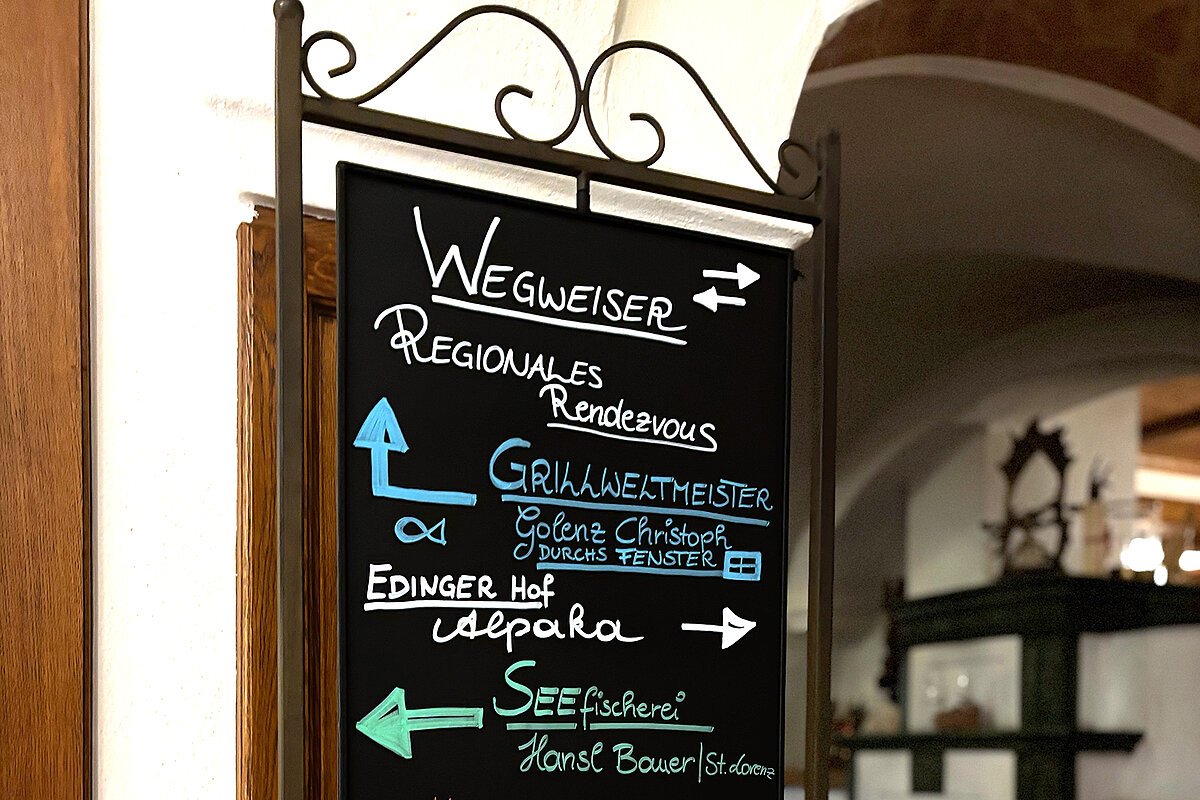 WEGWEISER
REGIONALES
Rendezvous
GRILLWELTMEISTER
Golenz Christoph
DURCHS FENSTER
EDINGER Hof
Alpaka
SEEfischerei
Hansl Bauer/St. Lorenz